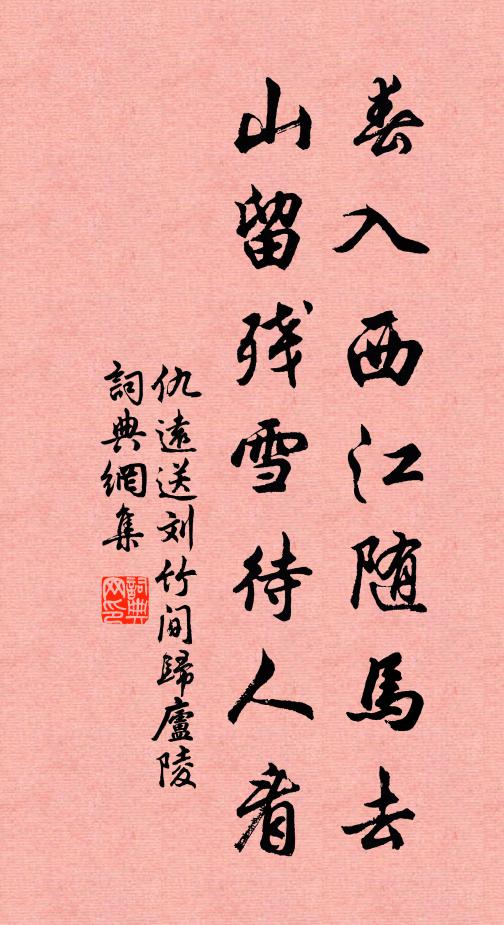 春入西江随馬去
山留残雪待人看
仇遠送刘竹间歸廬陵
詞典網集
詞典網印